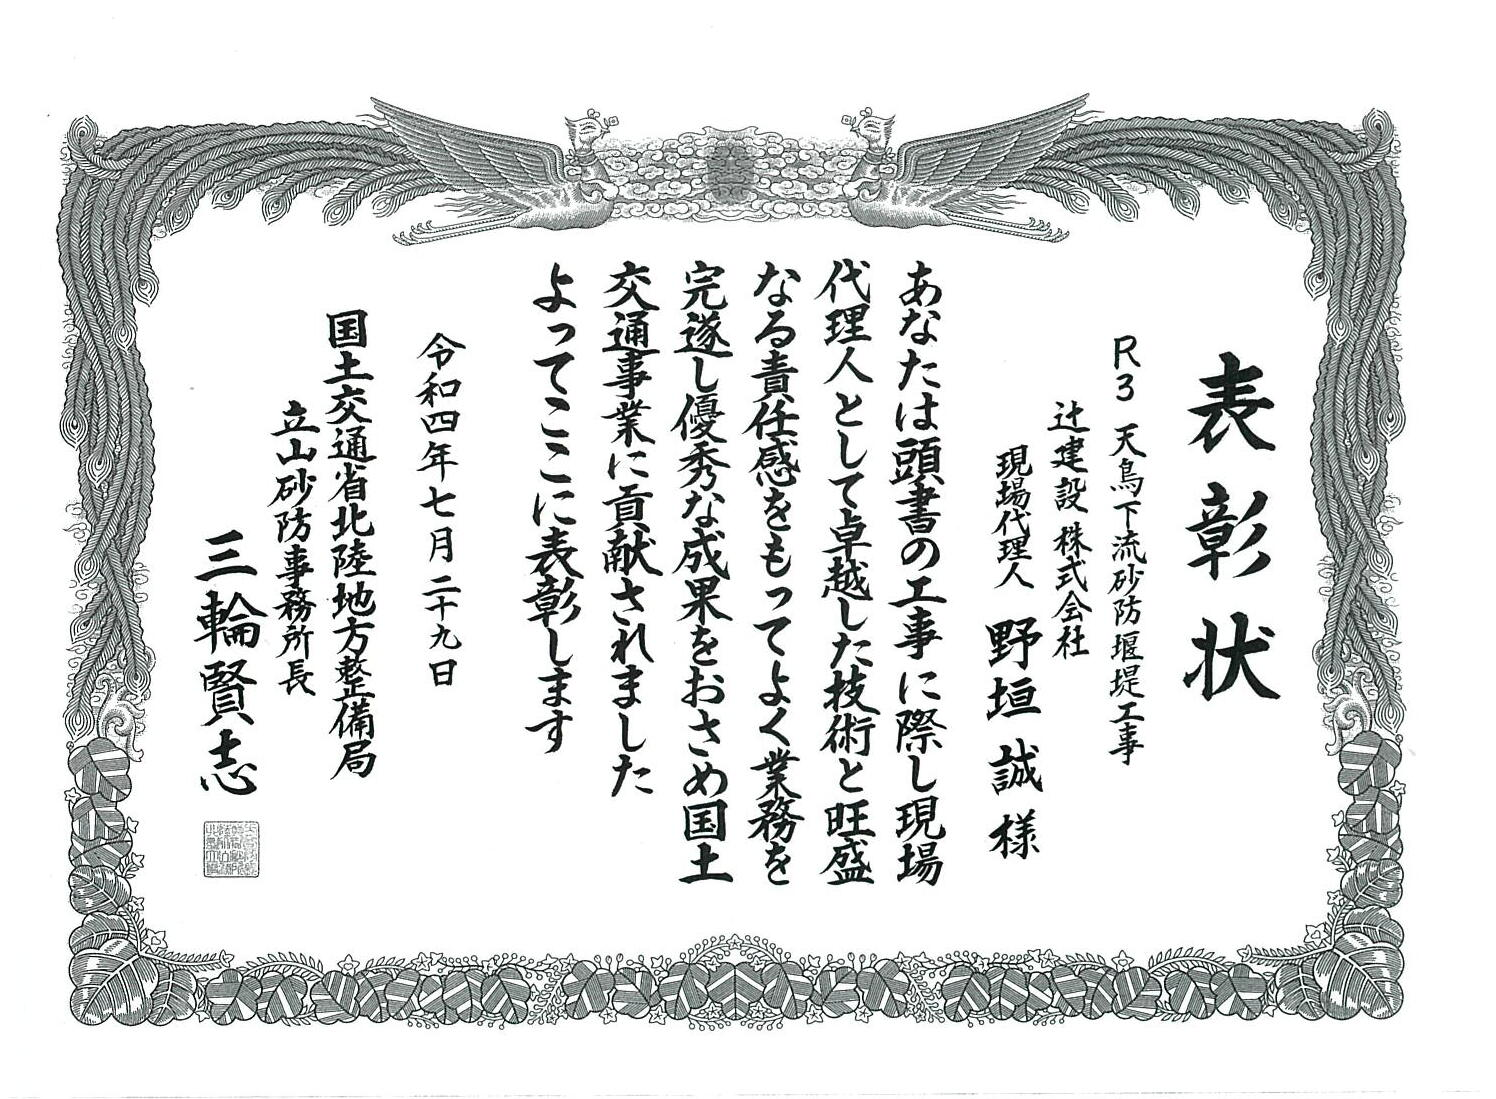 表彰状
R3 天鳥下流砂防堰堤工事
辻建設株式会社
現場代理人 野垣誠様
あなたは頭書の工事に際し現場
代理人として卓越した技術と旺盛
なる責任感をもってよく業務を
完遂し優秀な成果をおさめ国土
交通事業に貢献されました
よってここに表彰します
令和四年七月二十九日
国土交通省北陸地方整備局
立山砂防事務所長
三輪賢志